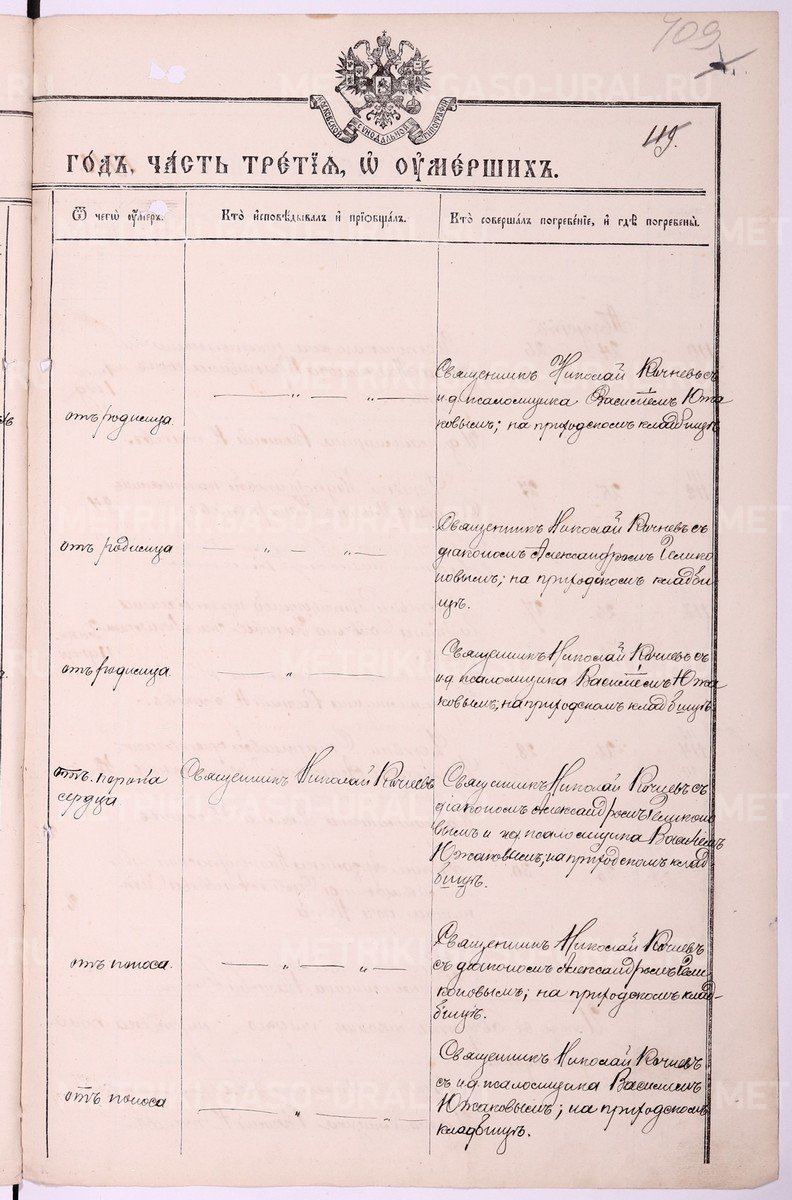 409
119.
МОСКОВСКОЙ СѴНОДАЛЬНОЙ ТИПОГРАФІИ
ГО́ДЪ, ЧА́СТЬ ТРЕ́ТІѦ, Ѽ ОУ҆МЕ́РШИХЪ.
Ѿ чегѡ̀ оу҆́меръ.
Кто̀ и҆сповѣ́дывалъ и҆ прїѡбща́лъ.
Кто̀ соверша́лъ погребе́нїе, и҆ гдѣ̀ погребены̀.
отъ родимца.
— „ — „ —
Священникъ Николай Кочневъ съ
и д. псаломщика Василіемъ Южа
ковымъ; на приходскомъ кладбищѣ
отъ родимца
— „ — „ —
Священникъ Николай Кочневъ съ
діакономъ Александромъ Гелико
новымъ; на приходскомъ кладби
щѣ.
отъ родимца.
— „ —
Священникъ Николай Кочневъ съ
и д. псаломщика Василіемъ Южа
ковымъ; на приходскомъ кладбищѣ
отъ порока
сердца
Священникъ Николай Кочневъ
Священникъ Николай Кочневъ съ
діакономъ Александромъ Геликоно
вымъ и и. д. псаломщика Василіемъ
Южаковымъ; на приходскомъ клад
бищѣ.
отъ поноса.
— „ — „ —
Священникъ Николай Кочневъ
съ діакономъ Александромъ Гели
коновымъ; на приходскомъ клад-
бищѣ.
отъ поноса
— „ — „ —
Священникъ Николай Кочневъ
съ и д. псаломщика Василіемъ
Южаковымъ; на приходскомъ
кладбищѣ.
METRIKI.GASO-URAL.RU